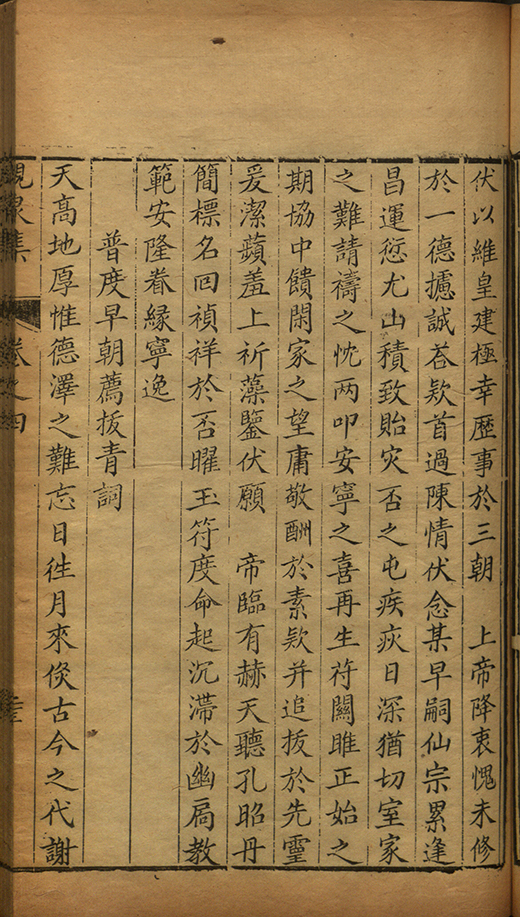 伏以維皇建極幸歷事於三朝　上帝降衷愧未修
於一德攄誠荅欵首過陳情伏念某早嗣仙宗累逢
昌運愆尤山積致貽灾否之屯疾疢日深猶切室家
之難請禱之忱两叩安寧之喜再生符關雎正始之
期協中饋閑家之望庸敬酬於素欵并追拔於先靈
爰潔蘋羞上祈藻鑒伏願　帝臨有赫天聽孔昭丹
簡標名回禎祥於否曜玉符度命起沉滯於幽扃教
範安隆眷緣寧逸
普度早朝薦拔青詞
天高地厚惟德澤之難忘日徃月來倐古今之代謝
峴泉集　卷之四